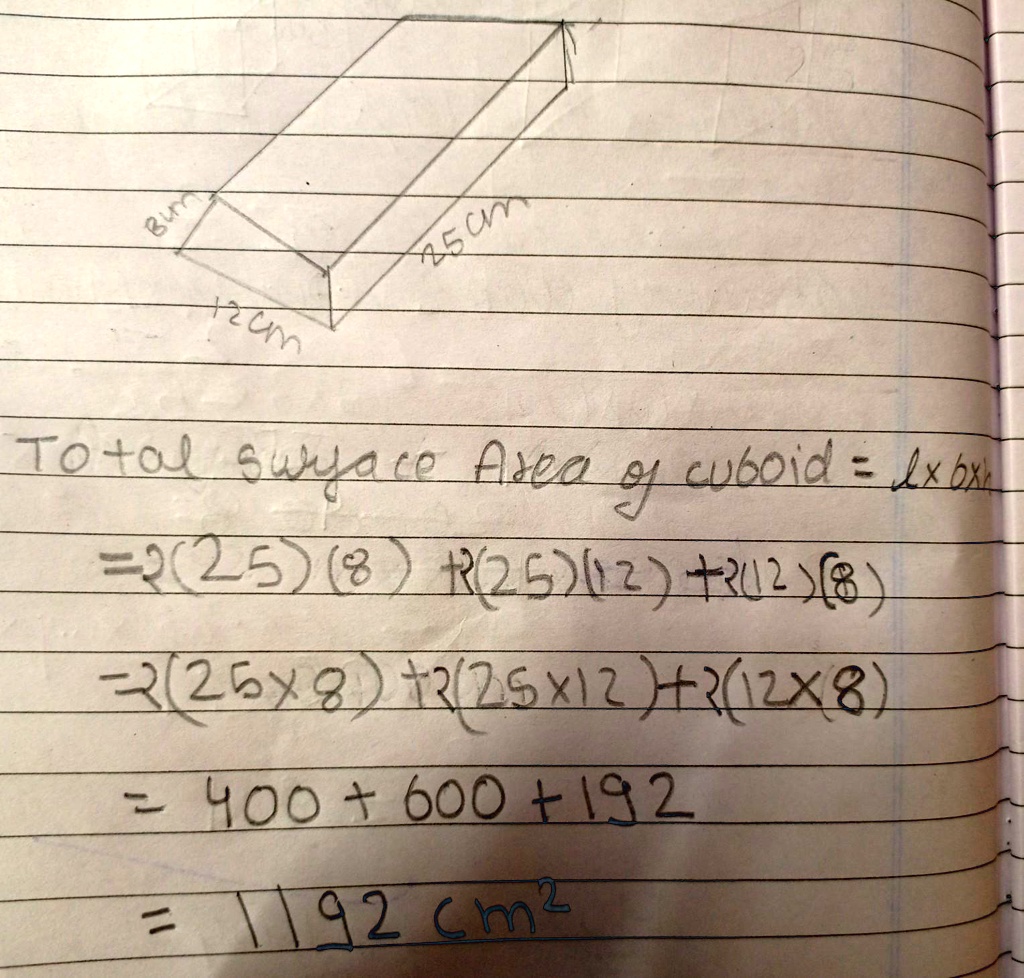 8cm
25cm
12cm
Total surface Area of cuboid = l×b×h
=2(25)(8) +2(25)(12) +2(12)(8)
=2(25×8)+2(25×12)+2(12×8)
= 400 + 600 + 192
= 1192 cm²